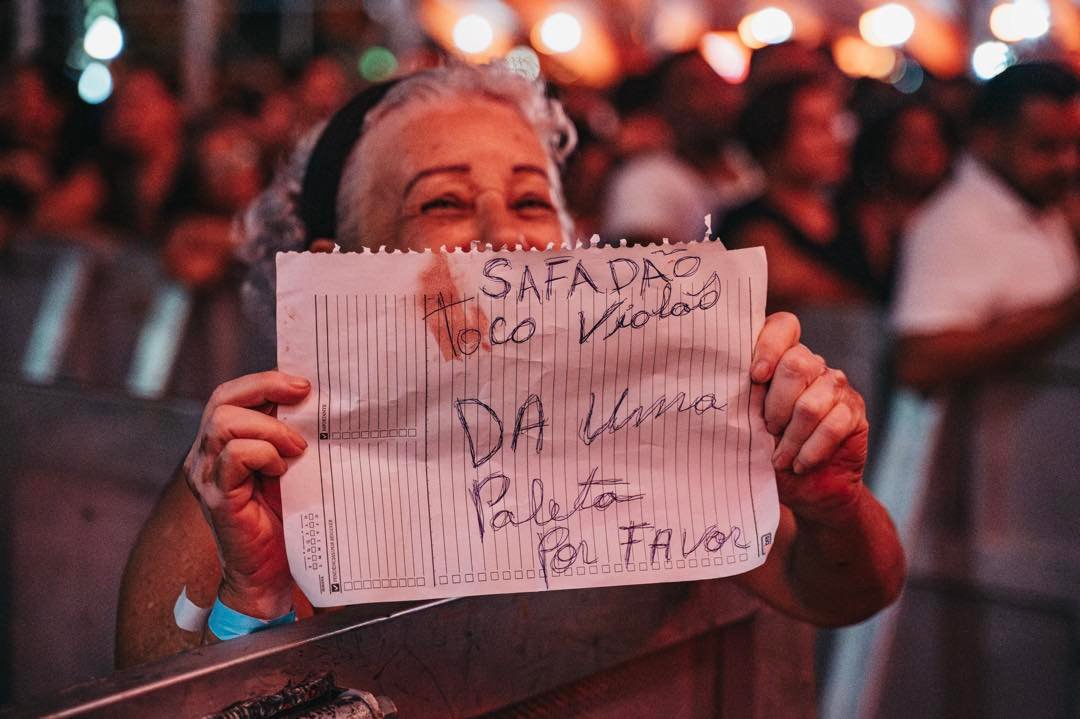 SAFADÃO
Toco Violão
DA Uma
Paleta
Por FAVOR